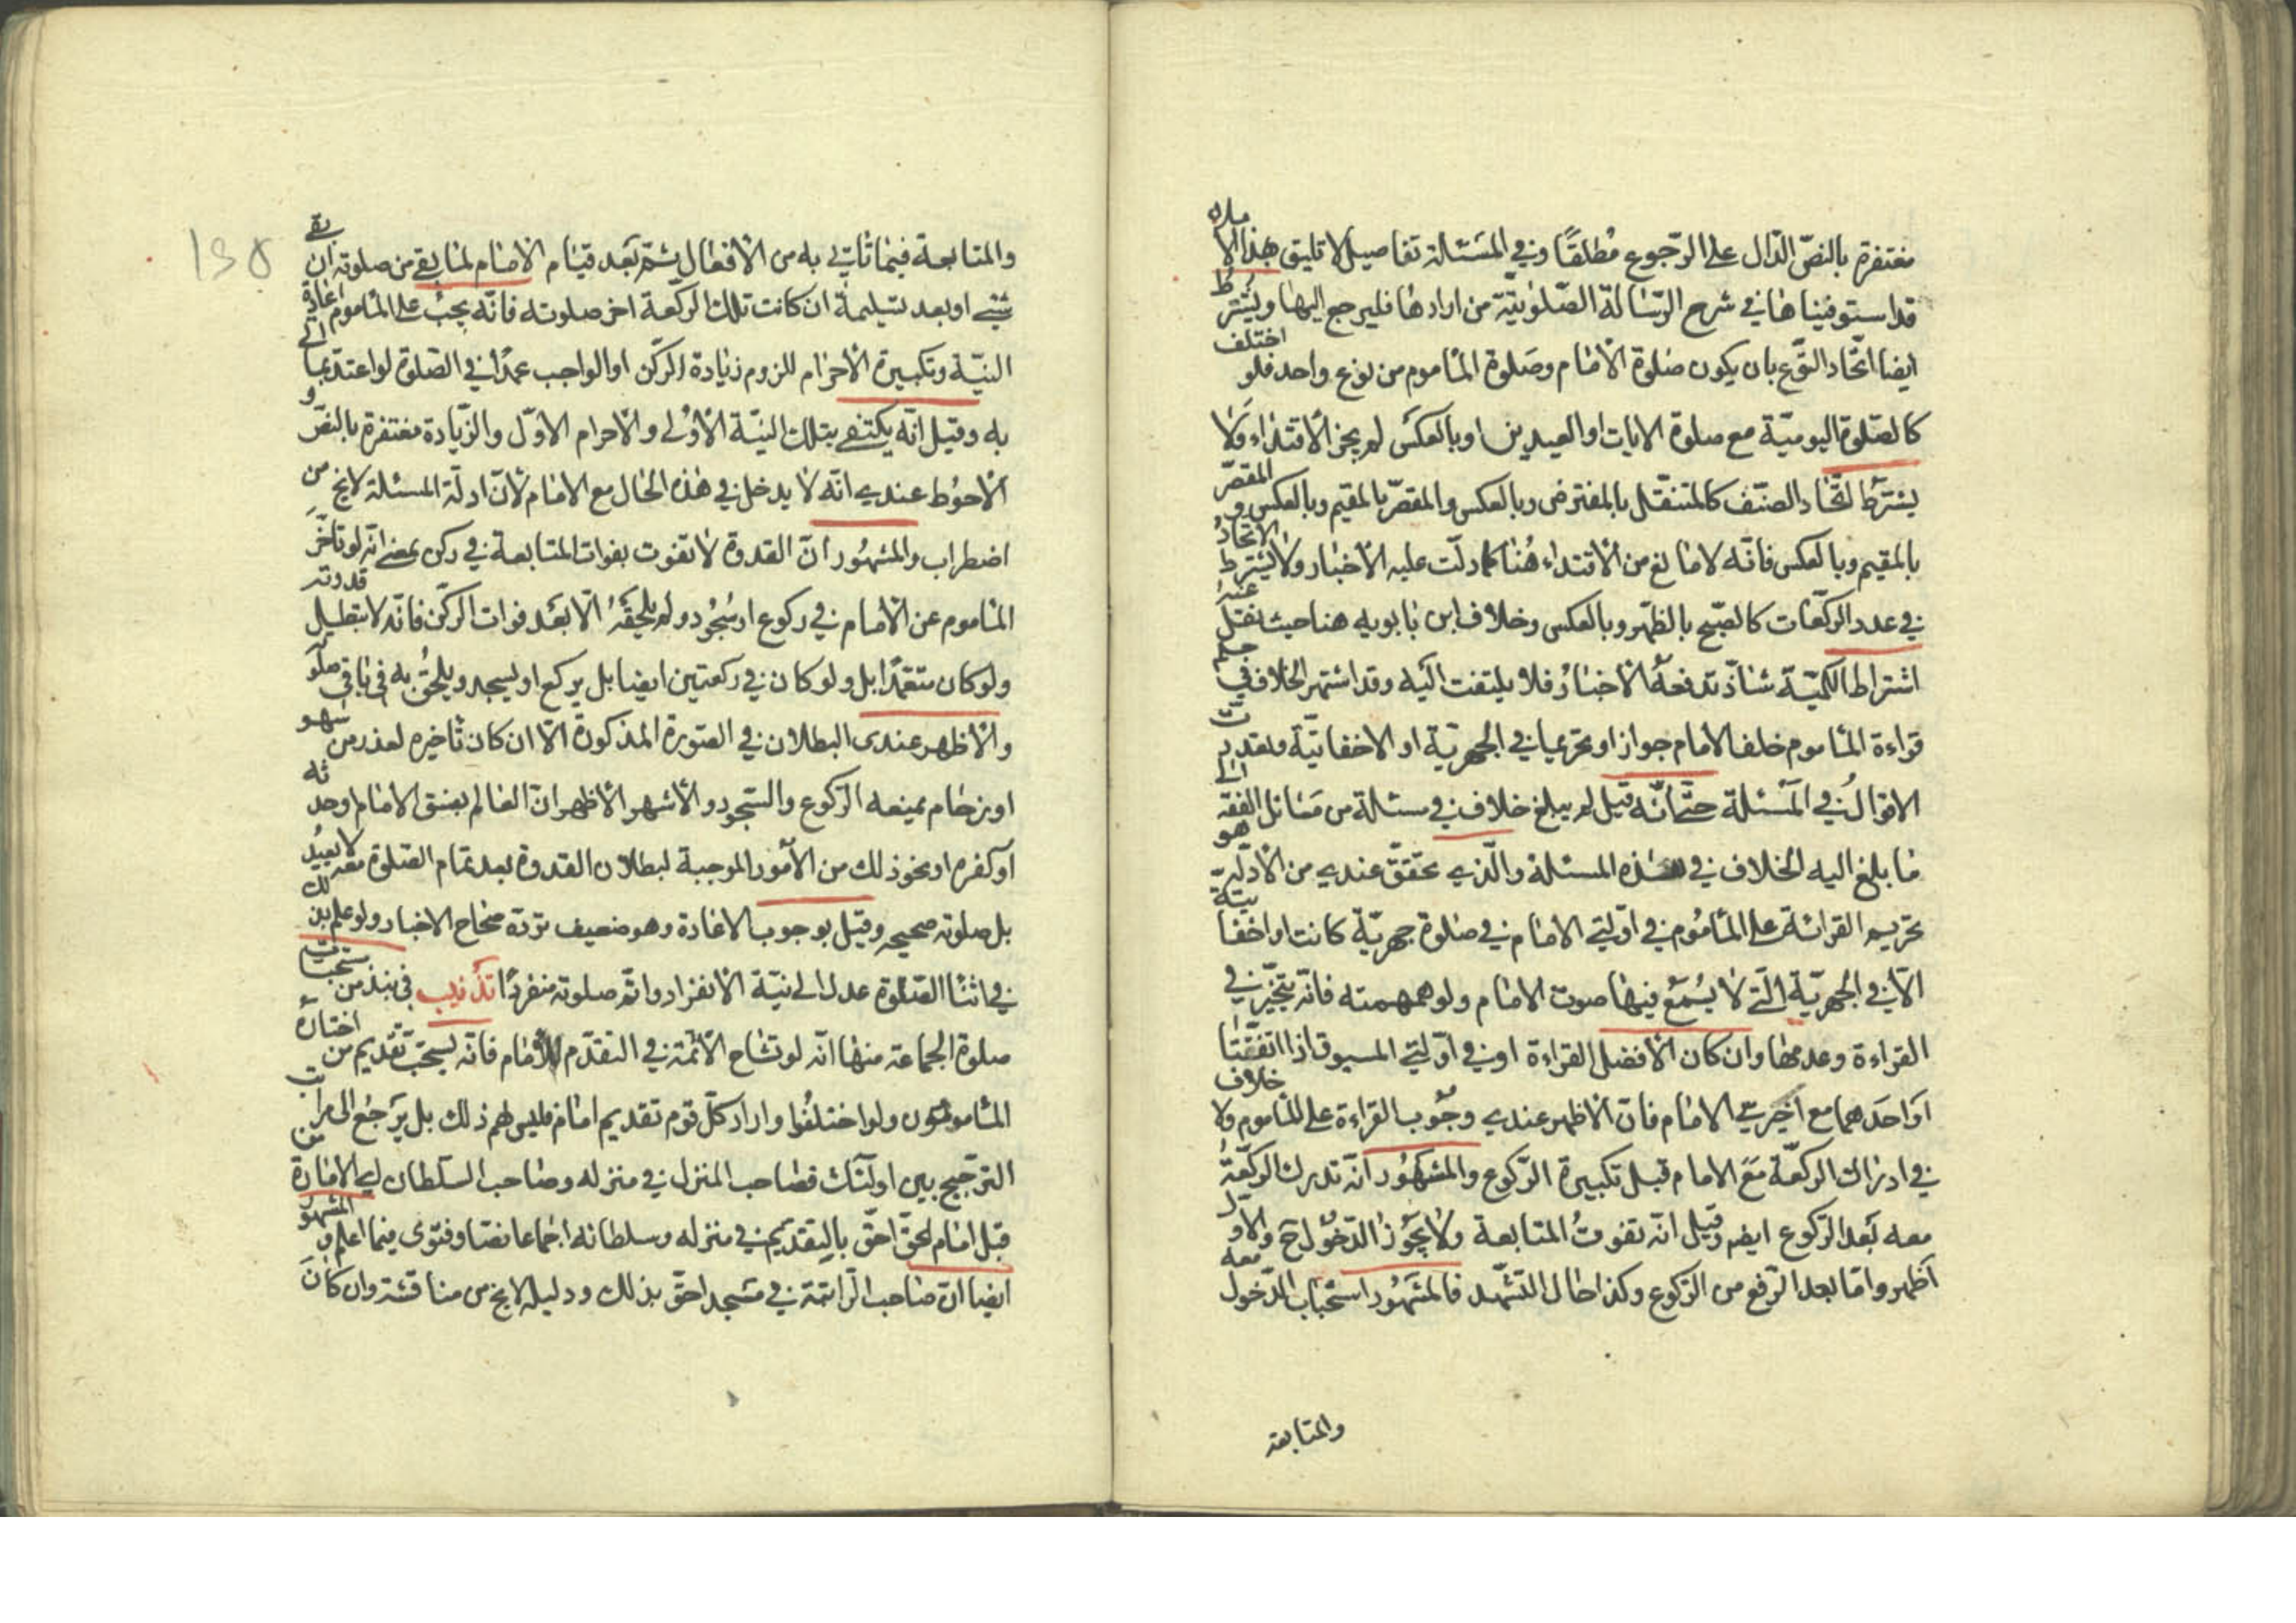 مغتفرة بالنصّ الدّال على الرّجوع مُطلقًا وفي المَسْئلة تفاصيل لا تليق بهذا الاملاء
قد استوفيناها في شرح الرّسالة الصّلوتيّة من ارادها فليرجع اليها ويشترط
ايضا اتّحاد النّوع بان يكون صَلوة الأمام وصَلوة المأموم من نوع واحد فلو اختلف
كالصّلوة اليوميّة مع صلوة الايات او العيدين او بالعكس لم يجز الأقتداء ولا
يشترط اتّحاد الصنّف كالمتنفّل بالمفترض وبالعكس والمقصّر بالمقيم وبالعكس و المقصّر
بالمقيم وبالعكس فانّه لا مانع من الأقتداء هُنا كما دلّت عليه الأخبار ولا يُشترط الاتحاد
في عدد الركّعات كالصّبح بالظّهر وبالعكس وخلاف ابن بابويه هنا حيث نقل عنه
اشتراط الكميّة شاذّ تدفعهُ الأخبارُ فلا يلتفت اليه وقد اشتهر الخلاف في
قراءة المأموم خلف الامام جوازا وتحريما في الجهريّة او الاخفاتيّة وتعددت
الاقوالُ في المسئلة حتّى انّه قيل لم يبلغ خلاف في مسئلة من مَسائل الفقه الى
ما بلغ اليه الخلاف في هذه المسئلة والّذي تحقّق عندي من الأدلّة هو
تحريم القرائة على المأمُوم في اوّلتي الامام في صَلوة جهريّة كانت او اخفاتيّة
الّا في الجهريّة الّتي لا يُسْمَع فيها صوت الامام ولو همهمته فانّه يتخيّر في
القراءة وعدمها وان كان الأفضل القراءة او في اوّلتي المسبوق اذا اتّفقتا
او احدهما مع اخيرتي الامام فانّ الاظهر عندي وجُوب القراءة على المأموم ولا خلاف
في ادراك الركعّة مَعَ الامام قبل تكبيرة الرّكوع والمشهُور انّه تدرك الركعّةُ
معه بَعد الرّكوع ايضا وقيل انّه تفوتُ المتابعة ولا يجُوز الدّخُول ح والاوّل
اظهر وامّا بعد الرّفع من الرّكوع وكذا حال التشهّد فالمشهُور استحباب الدّخول معه
والمتابعة
والمتابعة فيما ياتي به من الأفعال ثمّ بَعد قيام الأمام لما بقي من صلوته ان بقي
شيء او بعد تسليمه ان كانت تلك الركّعة اخر صلوته فانّه يجبُ على المأموم اعادة
النيّة وتكبيرة الأحرام للزوم زيادة الركّن او الواجب عمدًا في الصّلوة لو اعتد بما اتى
به وقيل انّه يكتفى بتلك النيّة الأولى والأحرام الاوّل والزّيادة مغتفرة بالنصّ و
الأحوُط عندي انّه لا يدخل في هذه الحال مع الامام لأنّ ادلّة المسئلة لا يخ من
اضطراب والمشهُور انّ القدوة لا تفوت بفوات المتابعة في ركن بمعنى انّه لو تاخّر
المأموم عن الأمام في ركوع او سُجُود ولم يلحقَهُ الّا بعَد فوات الركّن فانّه لا تبطل قدوته
ولو كان متعمّدا بل ولو كان في ركعتين ايضا بل يركع او يسجد ويلحُق به في باقي صلوته
والأظهر عندى البطلان في الصّورة المذكورة الّا ان كان تأخيره لعذر من سهو
او زحام يمنعه الرّكوع والسّجود والأشهر الأظهر انّ العالم بفسق الامام او حدثه
او كفره او نحو ذلك من الأمُور الموجبة لبطلان القدوة بعد تمام الصّلوة معه لا يُعيدُ
بل صلوته صحيحه وقيل بوجوب الاعادة وهو ضعيف تردّه صحاح الاخبار ولو علم بذلك
في اثناء الصّلوة عدل الى نيّة الأنفراد واتمّ صلوته منفردًا تذنيب في نبذ من مستحبّات
صلوة الجماعة منها انّه لو تشاح الأئمّة في التقدّم للأمام فانّه يُستحبّ تقديم من اختاره
المأمومُون ولو اختلفُوا واراد كلّ قوم تقديم امام فليس لهم ذلك بل يَرجَع الى مراتب
الترجيح بين اولئك فصاحب المنزل في منزله وصاحب السّلطان اي الامارة من
قبل امام الحقّ احقّ بالتقديم في منزله وسلطانه اجماعا نصّا وفتوى فيما اعلم والمشهور
ايضا انّ صاحب الرّاتبة في مَسْجد احقّ بذلك ودليله لا يخ من مناقشة وان كانَ